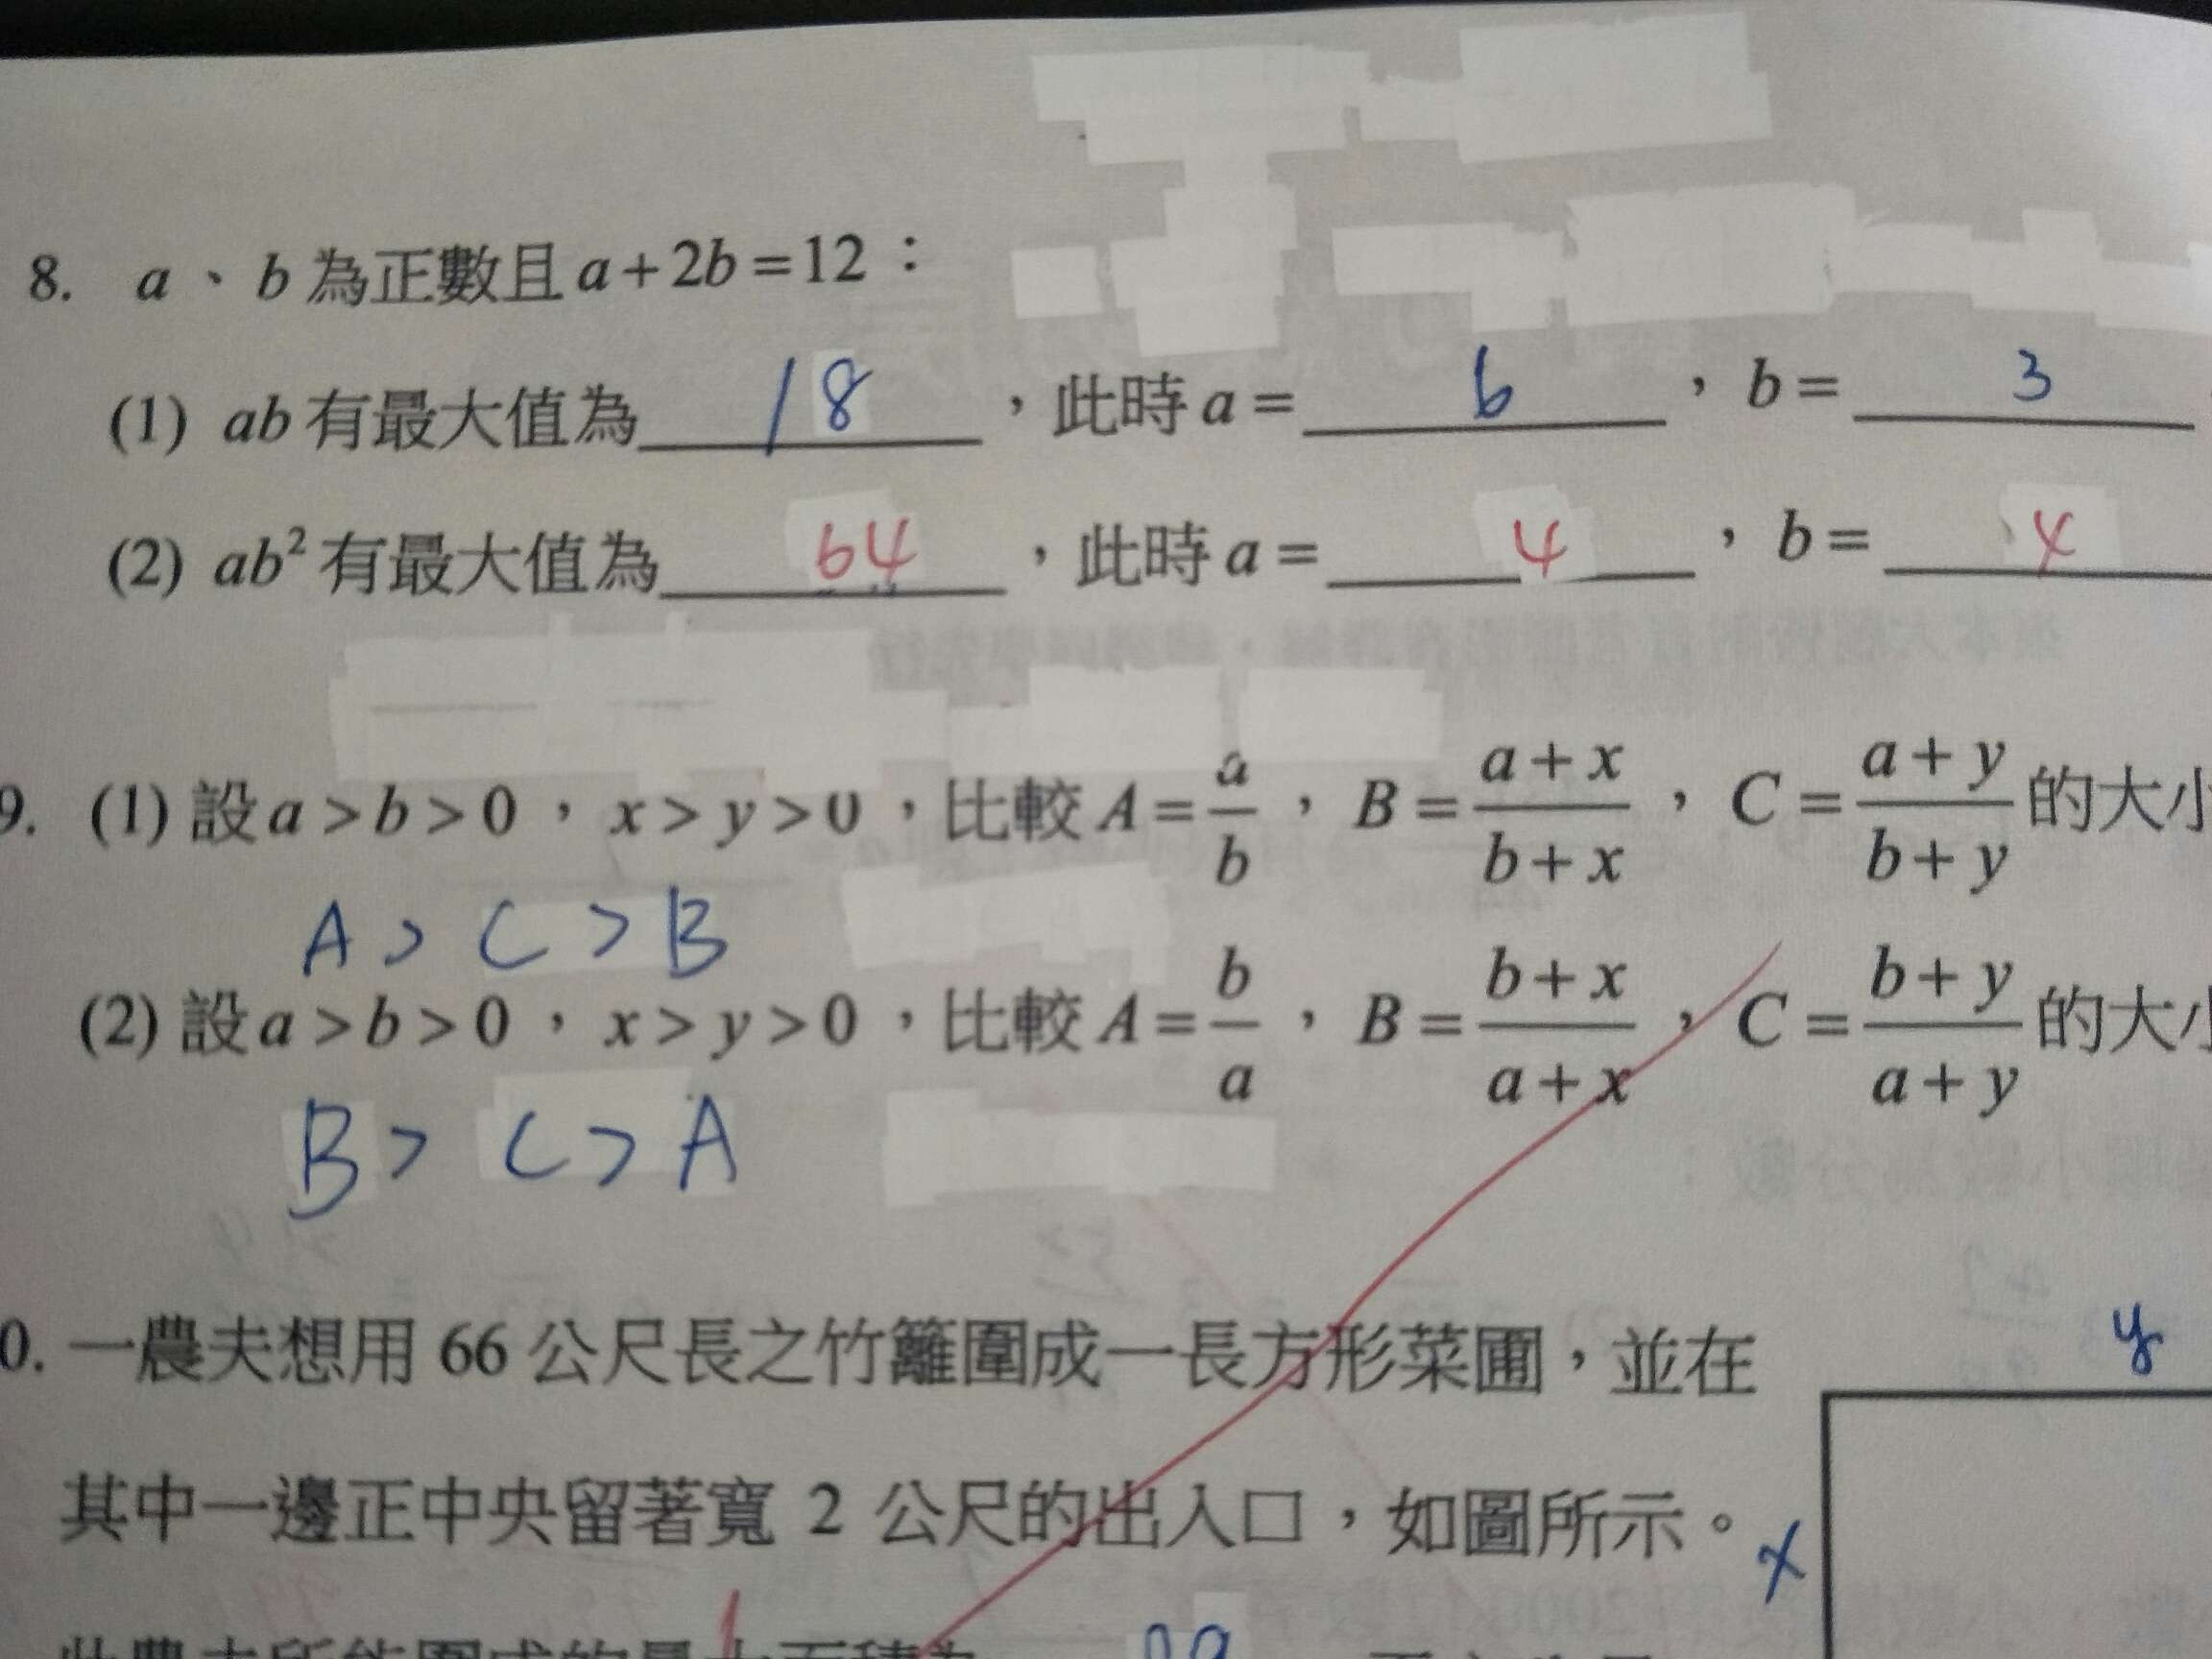 8. a、b為正數且a+2b=12：
(1) ab有最大值為 18 ，此時a= 6 ，b= 3
(2) ab²有最大值為 64 ，此時a= 4 ，b= 4
9. (1) 設a>b>0，x>y>0，比較A=a/b，B=(a+x)/(b+x)，C=(a+y)/(b+y)的大小
A>C>B
(2) 設a>b>0，x>y>0，比較A=b/a，B=(b+x)/(a+x)，C=(b+y)/(a+y)的大
B>C>A
0. 一農夫想用66公尺長之竹籬圍成一長方形菜圃，並在
y
其中一邊正中央留著寬 2 公尺的出入口，如圖所示。
x